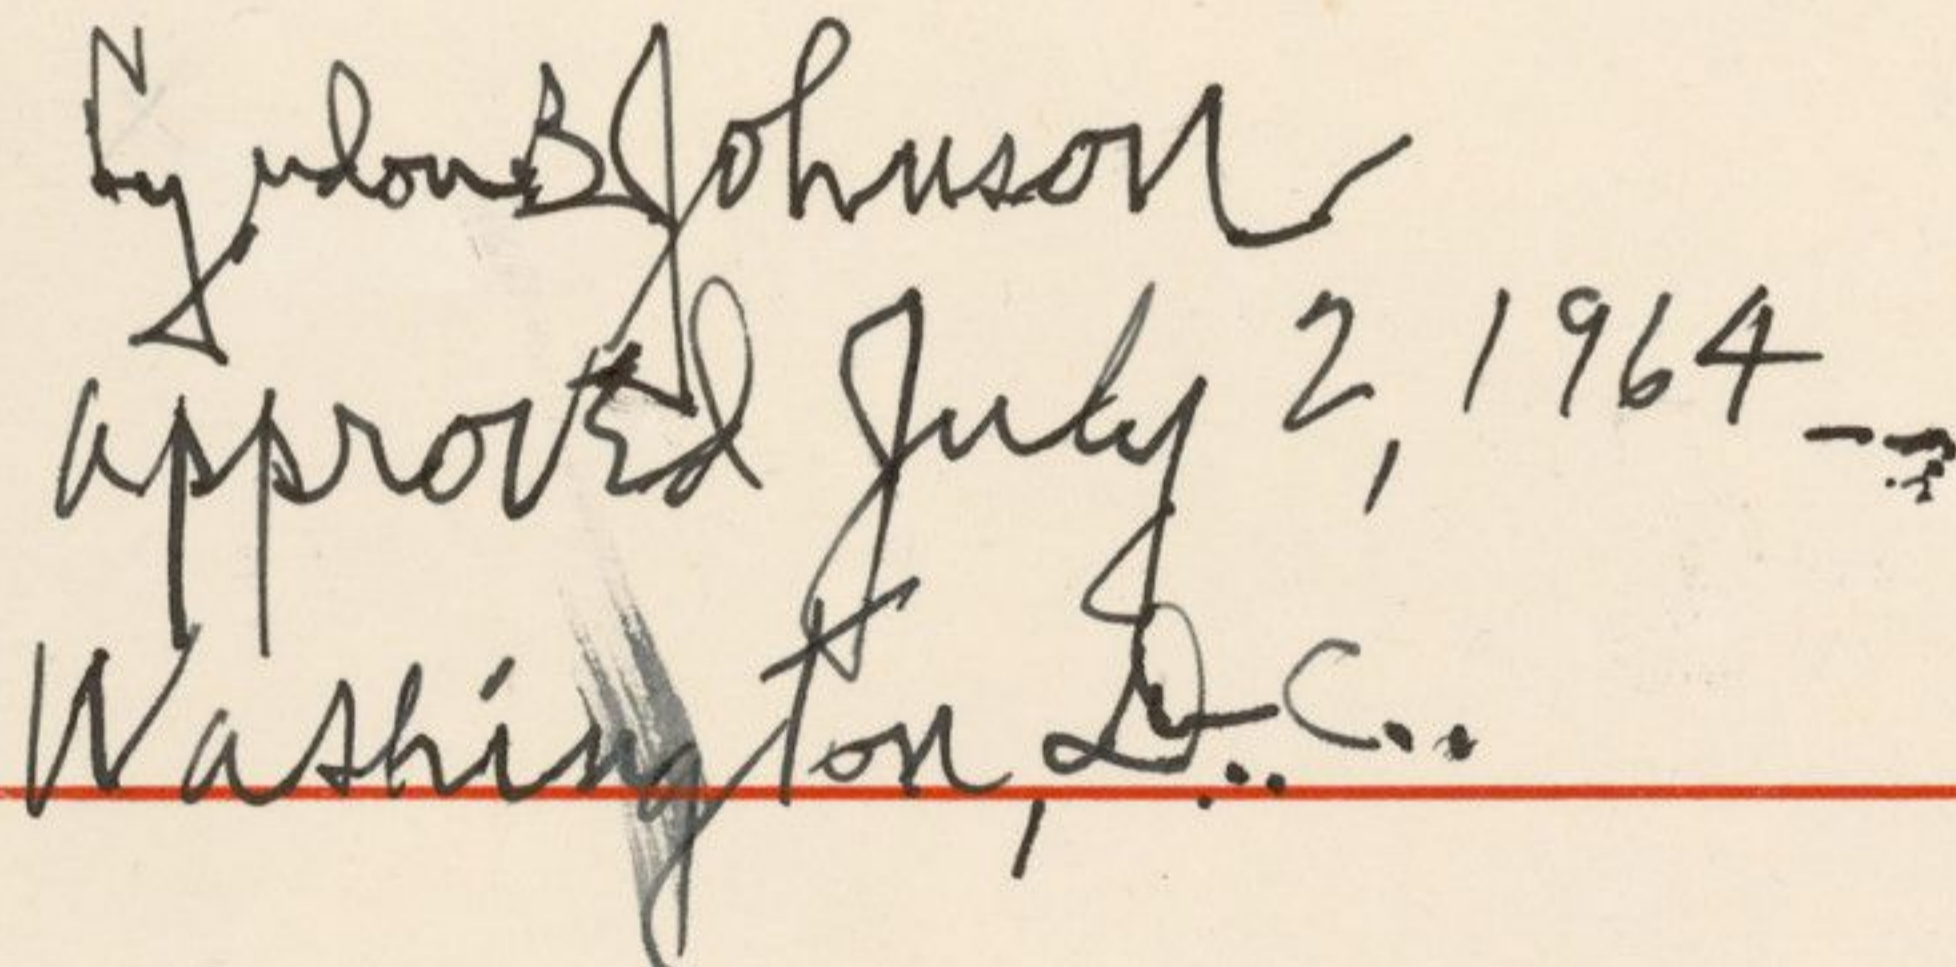 Lyndon B Johnson
approved July 2, 1964 -
Washington, D.C.